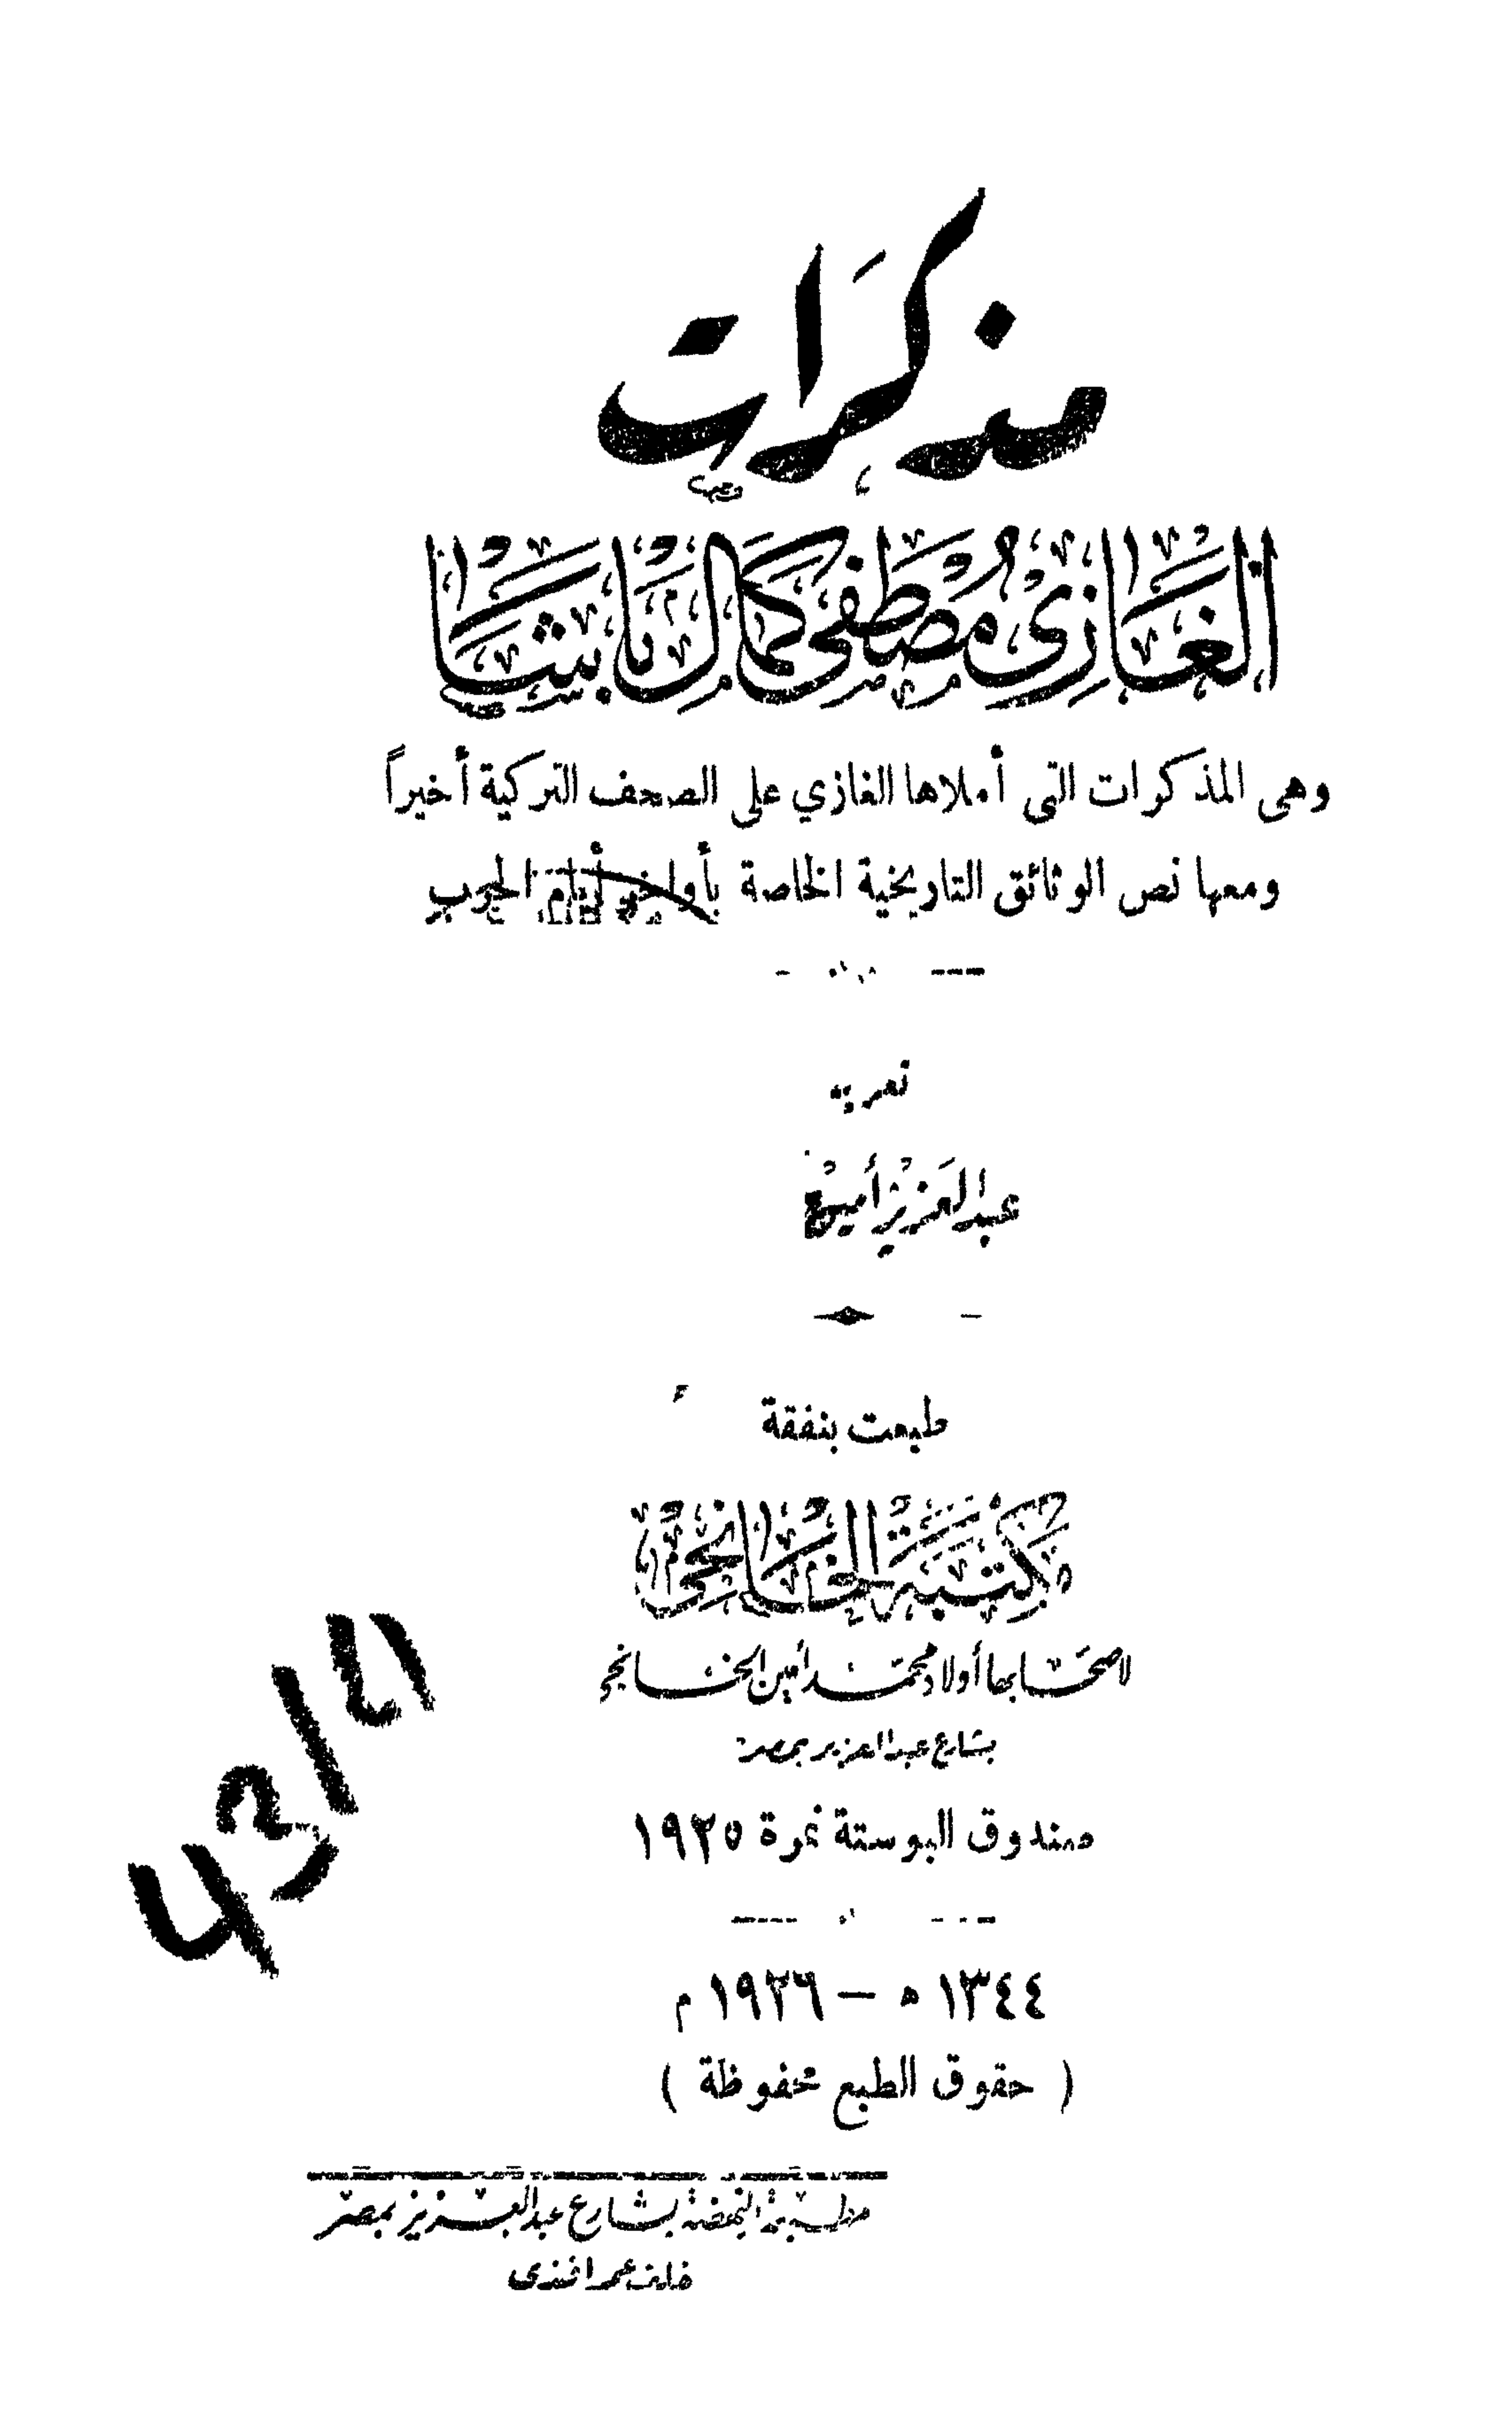 مذكرات
الغازي مصطفى كمال باشا
وهى المذكرات التى أملاها الغازي على الصحف التركية أخيراً
ومعها نص الوثائق التاريخية الخاصة بأواخر أيام الحرب
تعريب
عبد العزيز أمين
طبعت بنفقة
مكتبة الخانجى
لاصحابها أولاد محمد أمين الخانجي
بشارع عبد العزيز بمصر
صندوق البوستة نمرة ١٩٢٥
١٣٤٤ ه — ١٩٢٦ م
( حقوق الطبع محفوظة )
مطبعة النهضة بشارع عبد العزيز بمصر
عمر افندى